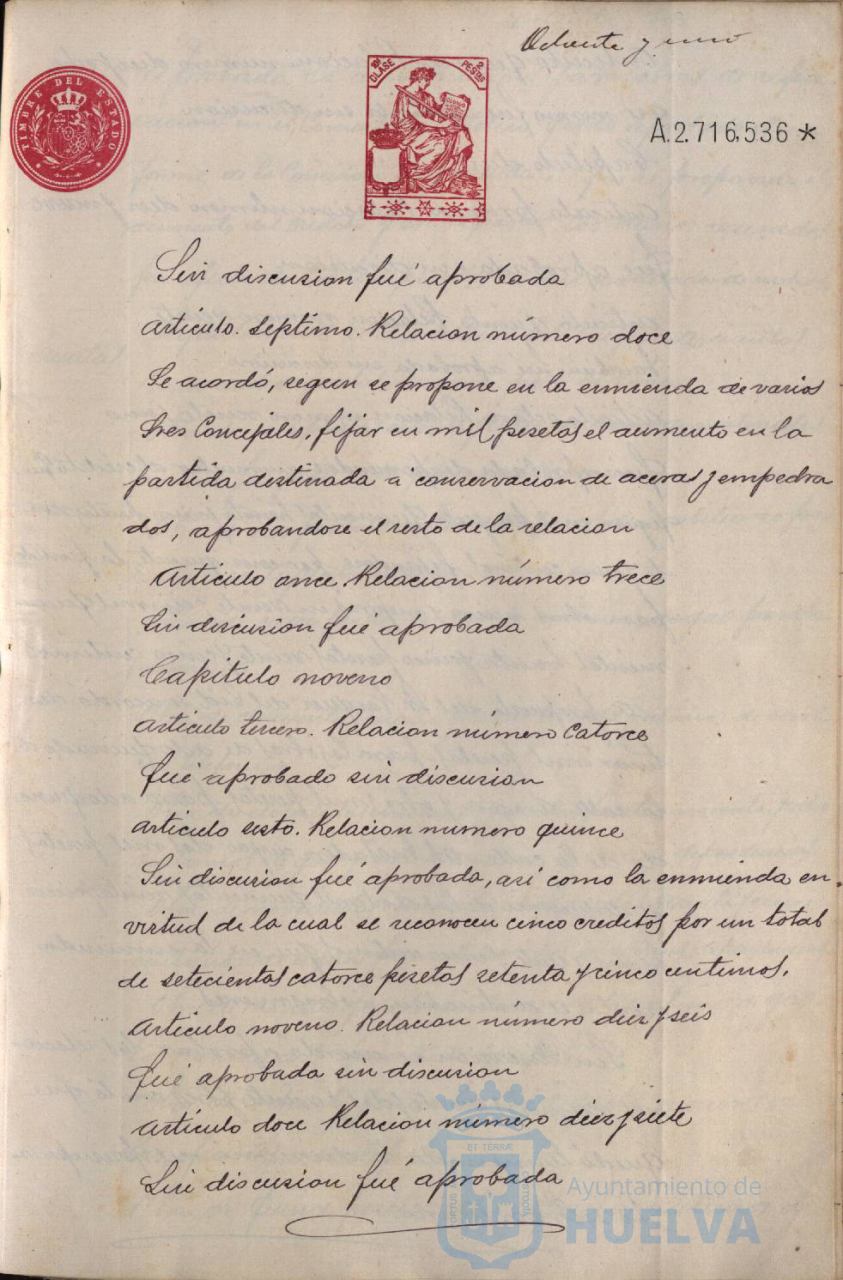 Ochenta y uno
TIMBRE DEL ESTADO
10ª CLASE
2 PESTAS
A.2.716,536 *
Sin discusion fué aprobada
Articulo. Septimo. Relacion número doce
Se acordó, segun se propone en la enmienda de varios
Sres Concejales, fijar en mil pesetas el aumento en la
partida destinada á conservacion de aceras y empedra
dos, aprobandose el resto de la relacion
Articulo once. Relacion número trece
Sin discusion fué aprobada
Capitulo noveno
Articulo tercero. Relacion número catorce
fué aprobado sin discusion
Articulo sesto. Relacion numero quince
Sin discusion fué aprobada, así como la enmienda en
virtud de la cual se reconocen cinco creditos por un total
de setecientas catorce pesetas setenta y cinco centimos.
Articulo noveno. Relacion número diez y seis
fué aprobada sin discusion
Articulo doce Relacion número diez y siete
Sin discusion fué aprobada
ET TERRÆ
PORTUS
CUSTODIA
Ayuntamiento de
HUELVA